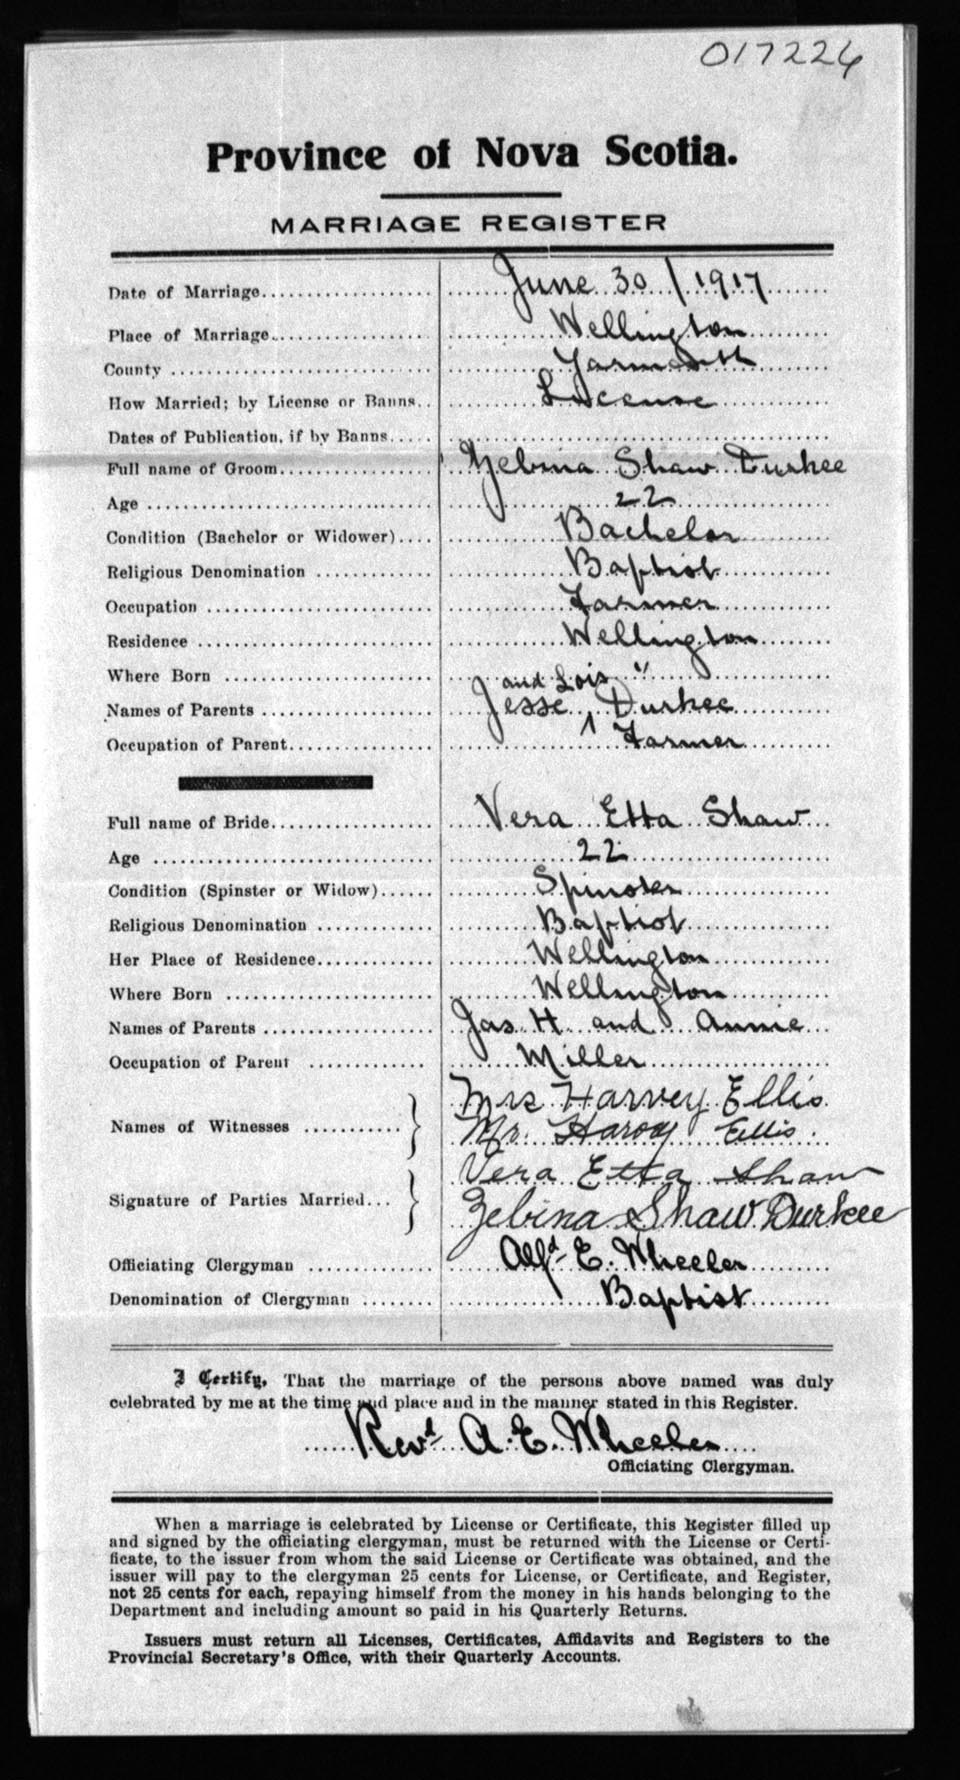 017226
Province of Nova Scotia.
MARRIAGE REGISTER
Date of Marriage.................... June 30 / 1917
Place of Marriage.................. Wellington
County .............................. Yarmouth
How Married; by License or Banns.. License
Dates of Publication, if by Banns.....
Full name of Groom.................. Zebina Shaw Durkee
Age ................................ 22
Condition (Bachelor or Widower).... Bachelor
Religious Denomination ............. Baptist
Occupation ......................... Farmer
Residence .......................... Wellington
Where Born ........................ "
and Lois
Names of Parents ................... Jesse ^ Durkee
Occupation of Parent................ Farmer
Full name of Bride.................. Vera Etta Shaw
Age ................................ 22
Condition (Spinster or Widow)...... Spinster
Religious Denomination ............. Baptist
Her Place of Residence............. Wellington
Where Born ........................ Wellington
Names of Parents ................... Jas H and Annie
Occupation of Parent ............. Miller
Names of Witnesses ........... } Mrs Harvey Ellis
Mr. Harvey Ellis.
Signature of Parties Married... } Vera Etta Shaw
Zebina Shaw Durkee
Officiating Clergyman .............. Alfd E. Wheeler
Denomination of Clergyman ........ Baptist
I Certify, That the marriage of the persons above named was duly
celebrated by me at the time and place and in the manner stated in this Register.
Revd A. E. Wheeler
Officiating Clergyman.
When a marriage is celebrated by License or Certificate, this Register filled up
and signed by the officiating clergyman, must be returned with the License or Certi-
ficate, to the issuer from whom the said License or Certificate was obtained, and the
issuer will pay to the clergyman 25 cents for License, or Certificate, and Register,
not 25 cents for each, repaying himself from the money in his hands belonging to the
Department and including amount so paid in his Quarterly Returns.
Issuers must return all Licenses, Certificates, Affidavits and Registers to the
Provincial Secretary's Office, with their Quarterly Accounts.